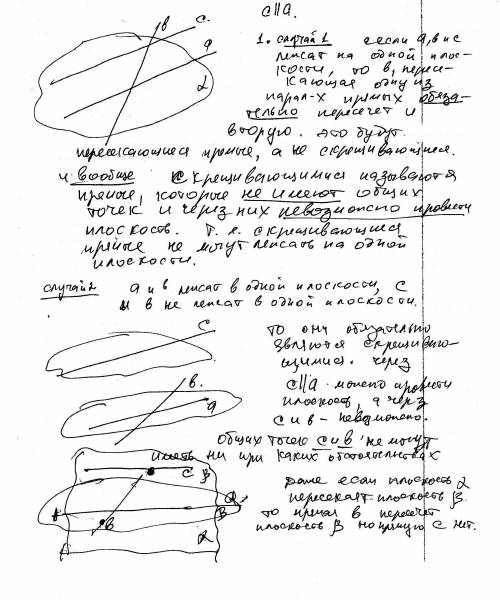 c||a.
в с.
а
α
1. случай 1 если а, в и с
лежат на одной плос-
кости, то в, пересе-
кающая одну из
парал-х прямых обяза-
тельно пересечет и
вторую. это будут
пересекающиеся прямые, а не скрещивающиеся.
и вообще скрещивающимися называются
прямые, которые не имеют общих
точек и через них невозможно провести
плоскость. т.е. скрещивающиеся
прямые не могут лежать на одной
плоскости.
случай 2 а и в лежат в одной плоскости, с
и в не лежат в одной плоскости.
с
то они обязательно
являются скрещиваю-
щимися. через
в.
c||a можно провести
а
плоскость, а через
с и в - невозможно.
общих точек с и в не могут
иметь ни при каких обстоятельствах
с β
даже если плоскость α
а
пересекает плоскость β
в β
то прямая в пересечет
α
плоскость β но прямую с нет.